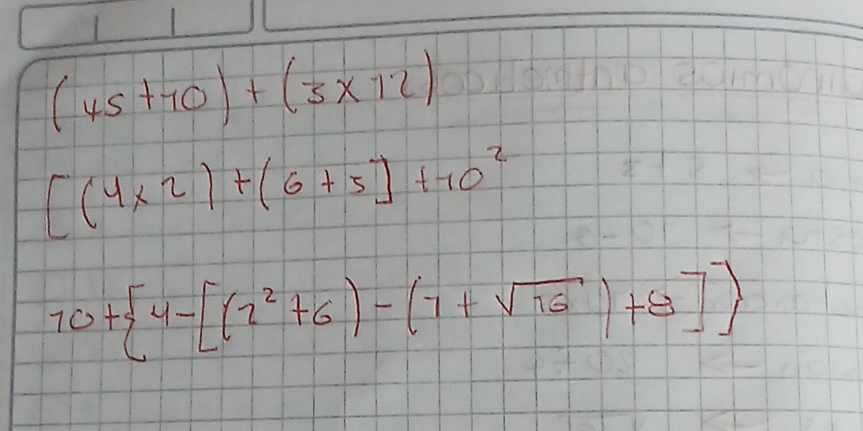 (45+10)+(3×12)
[(4×2)+(6+5]+10²
10+{4-[(2²+6)-(1+√16)+8]}